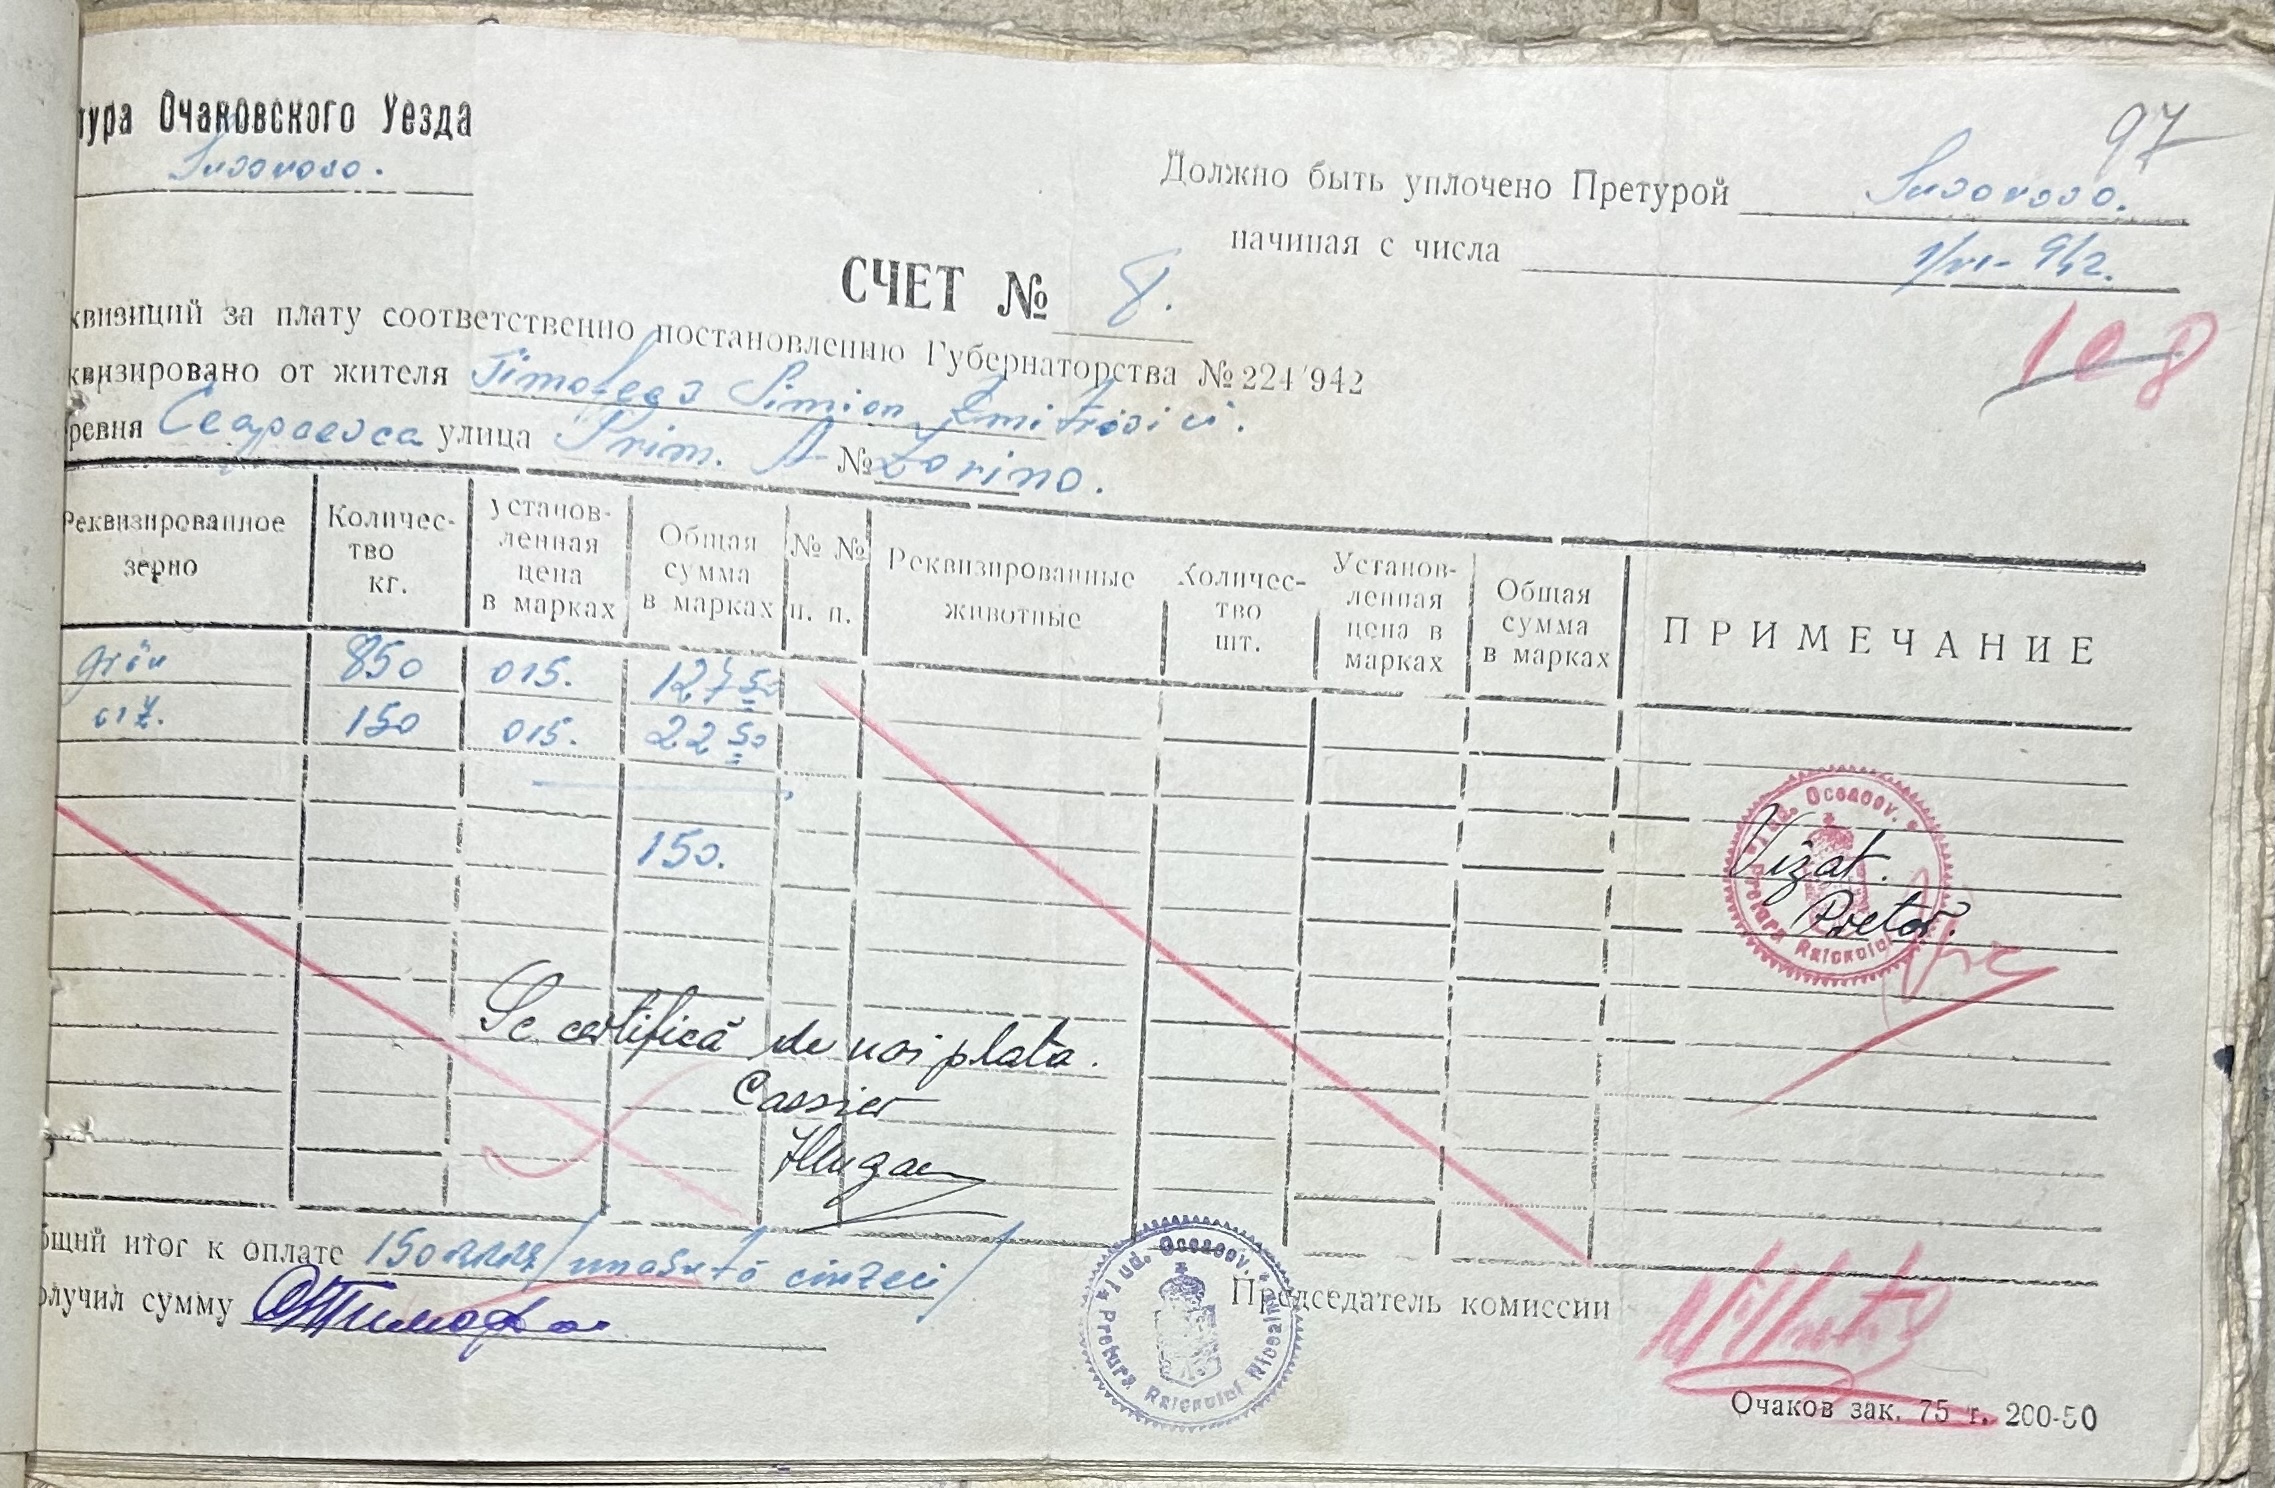 тура Очаковского Уезда
Suvorovo.
97
Должно быть уплочено Претурой Suvorovo.
начиная с числа 1/VI-942.
СЧЕТ № 8.
108
квизиций за плату соответственно постановлению Губернаторства № 224/942
квизировано от жителя Timofeev Simion Dmitrovici.
ревня Ceapaevca улица Prim. A № Zorino.
Реквизированное зерно
Количес-тво кг.
установ-ленная цена в марках
Общая сумма в марках
№ № п. п.
Реквизированные животные
Количес-тво шт.
Установ-ленная цена в марках
Общая сумма в марках
ПРИМЕЧАНИЕ
grâu 850 015. 127 50
orz. 150 015. 22 50
150.
Jud. Oceacov.
Pretura Raionului
Vizat.
Pretor.
Se certifică de noi plata.
Cassier
бщий итог к оплате 150 /unasută cinzeci/
олучил сумму Тимофе
Jud. Oceacov.
Pretura Raionului
Председатель комиссии
Очаков зак. 75 т. 200-50